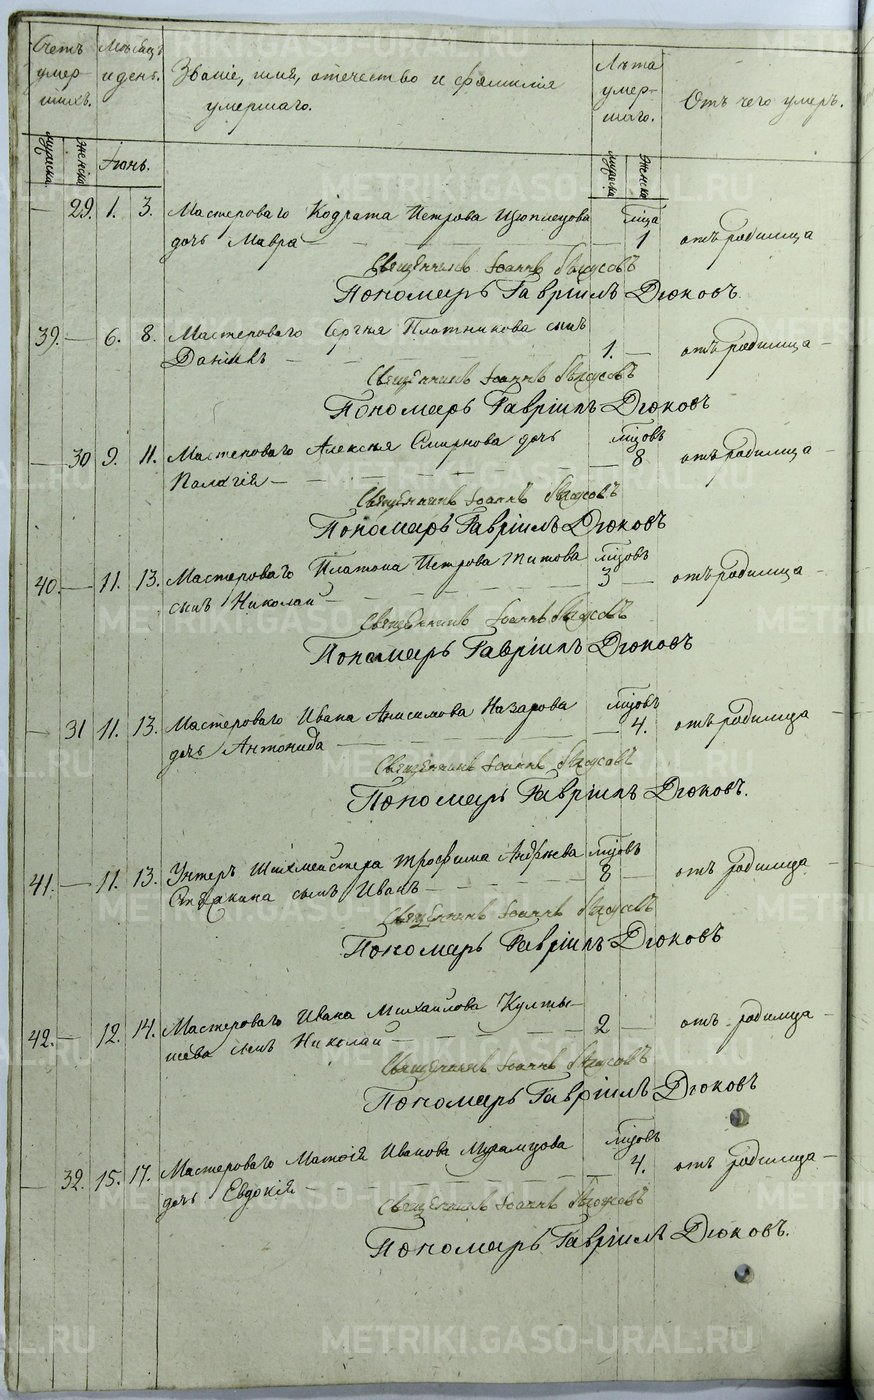 Счетъ умер- шихъ.
Мѣсяцъ и день.
Званіе, имя, отечество и фамилія
умершаго.
Лѣта умер- шаго.
Отъ чего умеръ.
мужеска. женска Іюнь. мужеска женска
— 29. 1. 3. Мастероваго Кодрата Петрова мца
дочь Мавра — 1 отъ родимца
Священникъ Іоаннъ
Пономарь Гавріилъ Дюковъ.
39. — 6. 8. Мастероваго Сергѣя Плотникова сынъ
Даніилъ — 1. — отъ родимца —
Священникъ Іоаннъ
Пономарь Гавріилъ Дюковъ
— 30 9. 11. Мастероваго Алексѣя Смирнова дочь мцовъ
Палагія — 8 отъ родимца —
Священникъ Іоаннъ
Пономарь Гавріилъ Дюковъ
40. — 11. 13. Мастероваго Платона Петрова Титова мцовъ
сынъ Николай — 3 — отъ родимца —
Священникъ Іоаннъ
Пономарь Гавріилъ Дюковъ
— 31 11. 13. Мастероваго Ивана Анисимова Назарова мцовъ
дочь Антонида — 4. отъ родимца —
Священникъ Іоаннъ
Пономарь Гавріилъ Дюковъ.
41. — 11. 13. Унтеръ Шихмейстера Трофима Андрѣева мцовъ
сынъ Иванъ — 8 — отъ родимца —
Священникъ Іоаннъ
Пономарь Гавріилъ Дюковъ
42. — 12. 14. Мастероваго Ивана Михаилова Култы-
шева сынъ Николай — 2 — отъ родимца —
Священникъ Іоаннъ
Пономарь Гавріилъ Дюковъ
— 32. 15. 17. Мастероваго Матѳія Иванова мцовъ
дочь Евдокія — 4. отъ родимца —
Священникъ Іоаннъ
Пономарь Гавріилъ Дюковъ.
METRIKI.GASO-URAL.RU